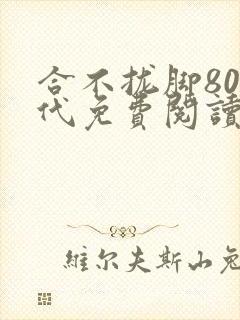 合不拢脚80
代免費閱讀
維尔夫斯山兔